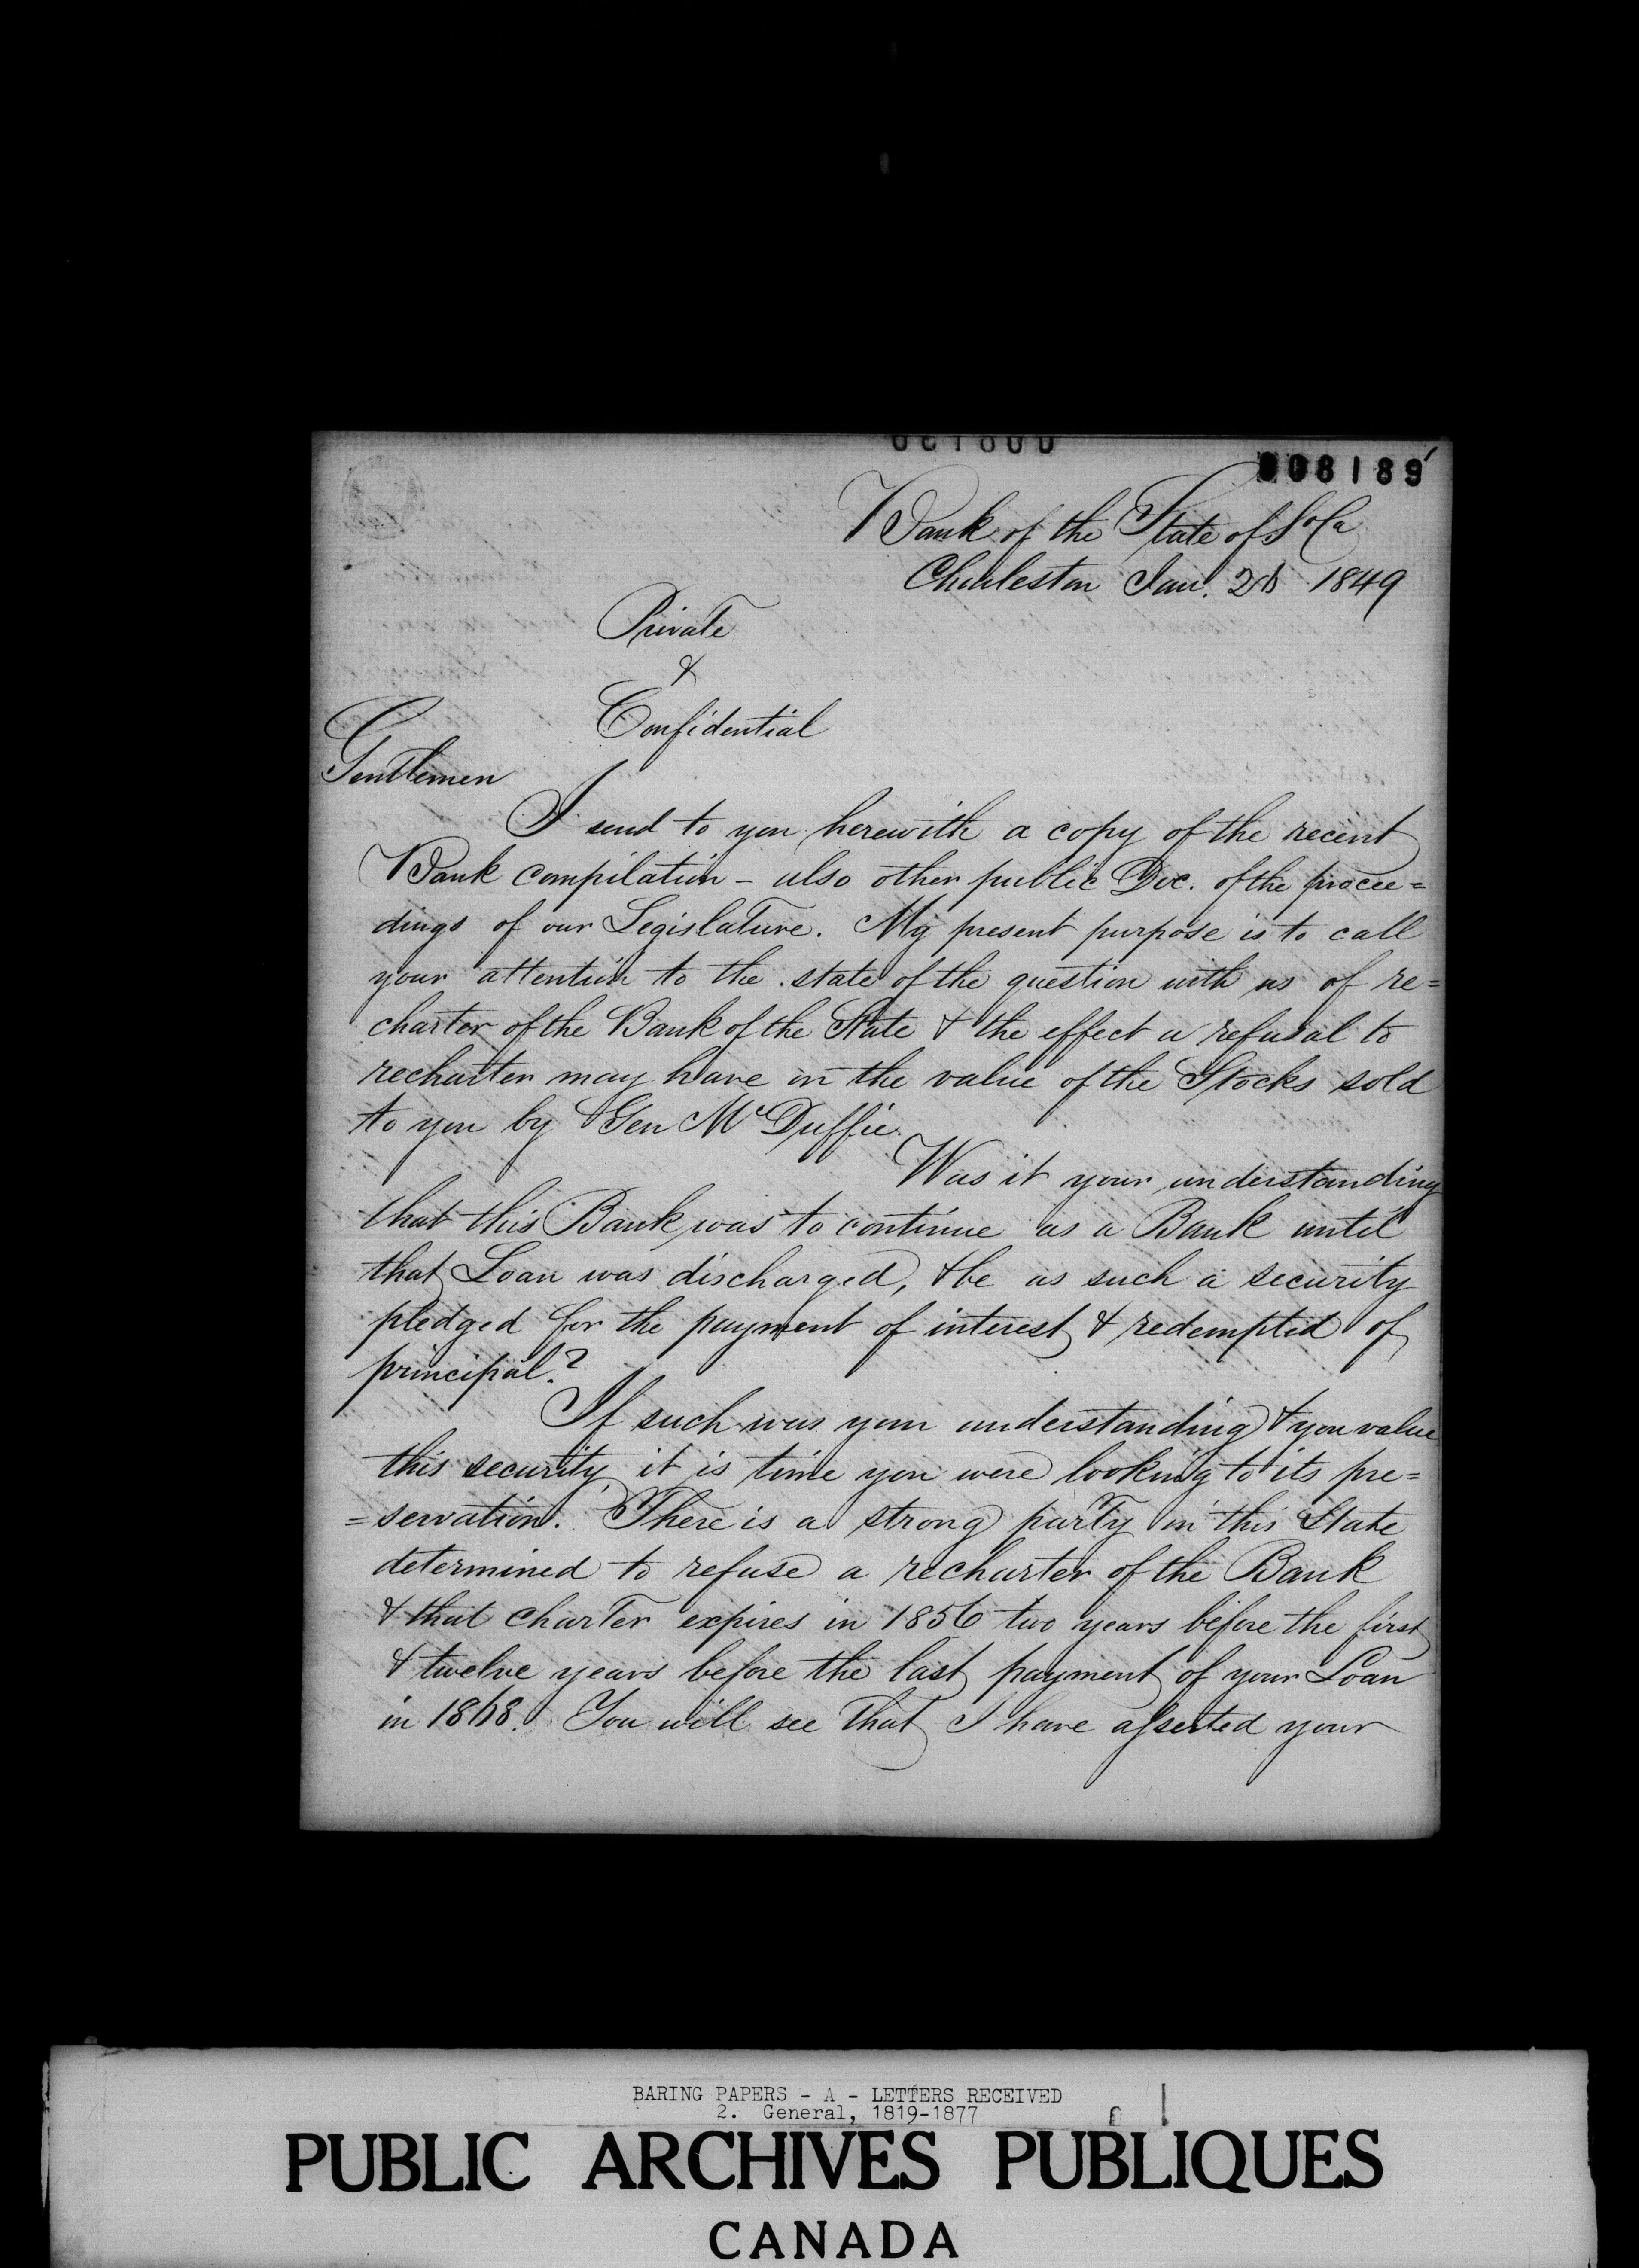 008189
Bank of the State of So Ca
Charleston Jan. 1849
Private
&
Confidential
Gentlemen
I send to you herewith a copy of the recent
Bank compilation - also other public Doc. of the procee=
dings of our Legislature. My present purpose is to call
your attention to the state of the question with us of re=
charter of the Bank of the State & the effect a refusal to
recharter may have on the value of the Stocks sold
to you by Gen McDuffie.
Was it your understanding
that this Bank was to continue as a Bank until
that Loan was discharged, & be as such a security
pledged for the payment of interest & redemptio of
principal?
If such was your understanding & you value
this security, it is time you were looking to its pre=
=servation. There is a strong party in this State
determined to refuse a recharter of the Bank
& that charter expires in 1856 two years before the first
& twelve years before the last payment of your Loan
in 1868. You will see that I have asserted your
BARING PAPERS - A - LETTERS RECEIVED
2. General, 1819-1877
PUBLIC ARCHIVES PUBLIQUES
CANADA